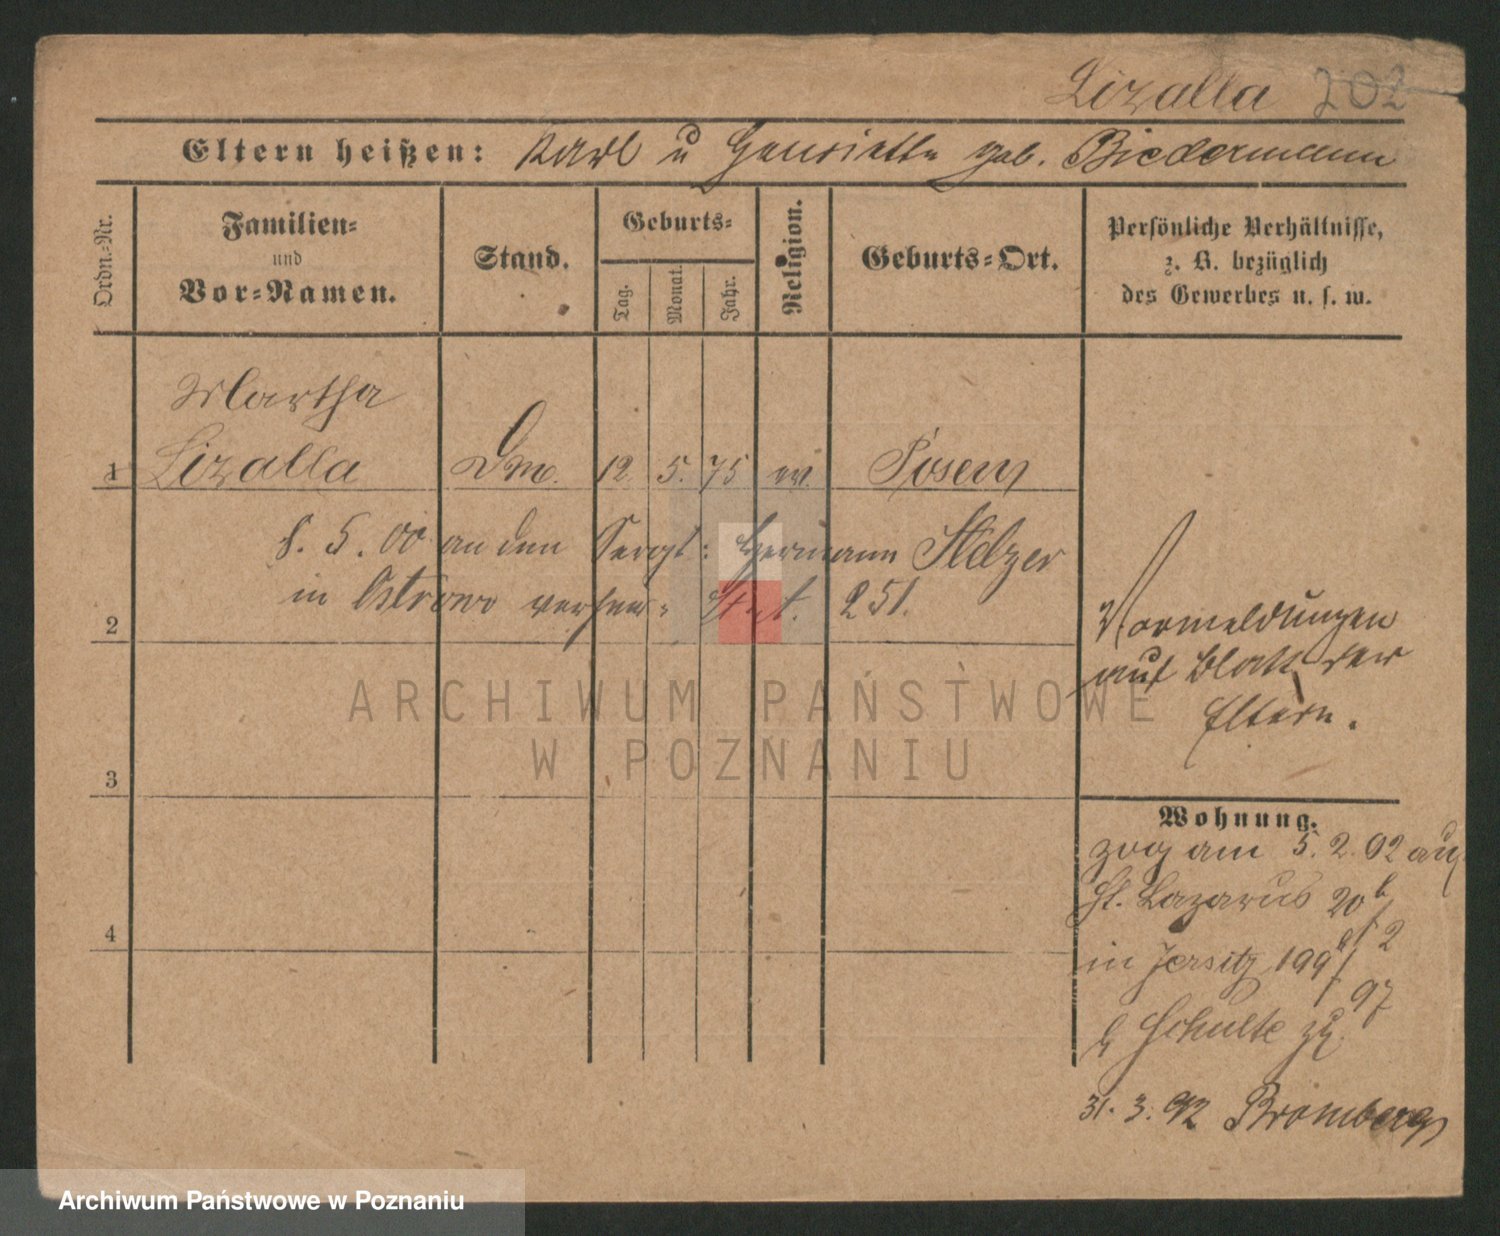 Lizalla 202
Eltern heißen: Karl u Henriette geb. Biedermann
Ordn.-Nr.
Familien-
und
Vor-Namen.
Stand.
Geburts-
Tag.
Monat.
Jahr.
Religion.
Geburts-Ort.
Persönliche Verhältnisse,
z. B. bezüglich
des Gewerbes u. s. w.
Martha
1 Lizalla 12. 5. 75 ev. Posen
8. 5. 00 an den Sergt: Hermann
in Ostrowo 251.
2
Vormeldungen
auf Blatt der
Eltern.
3
4
Wohnung.
zog am 5. 2. 92 auf
St. Lazarus 20 b
in Jersitz 199
Schulte
31. 3. 92 Bromberg
ARCHIWUM PAŃSTWOWE
W POZNANIU
Archiwum Państwowe w Poznaniu